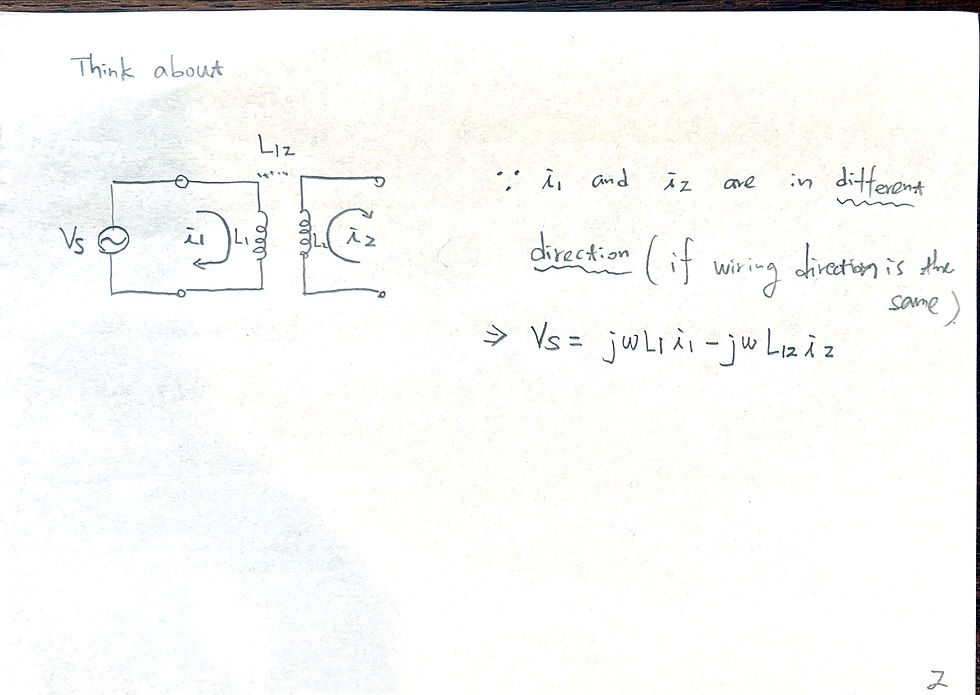 Think about
L12
Vs
i1
L1
L2
i2
∵ i1 and i2 are in different
direction (if wiring direction is the
same)
⇒ Vs = jwL1 i1 - jw L12 i2
2